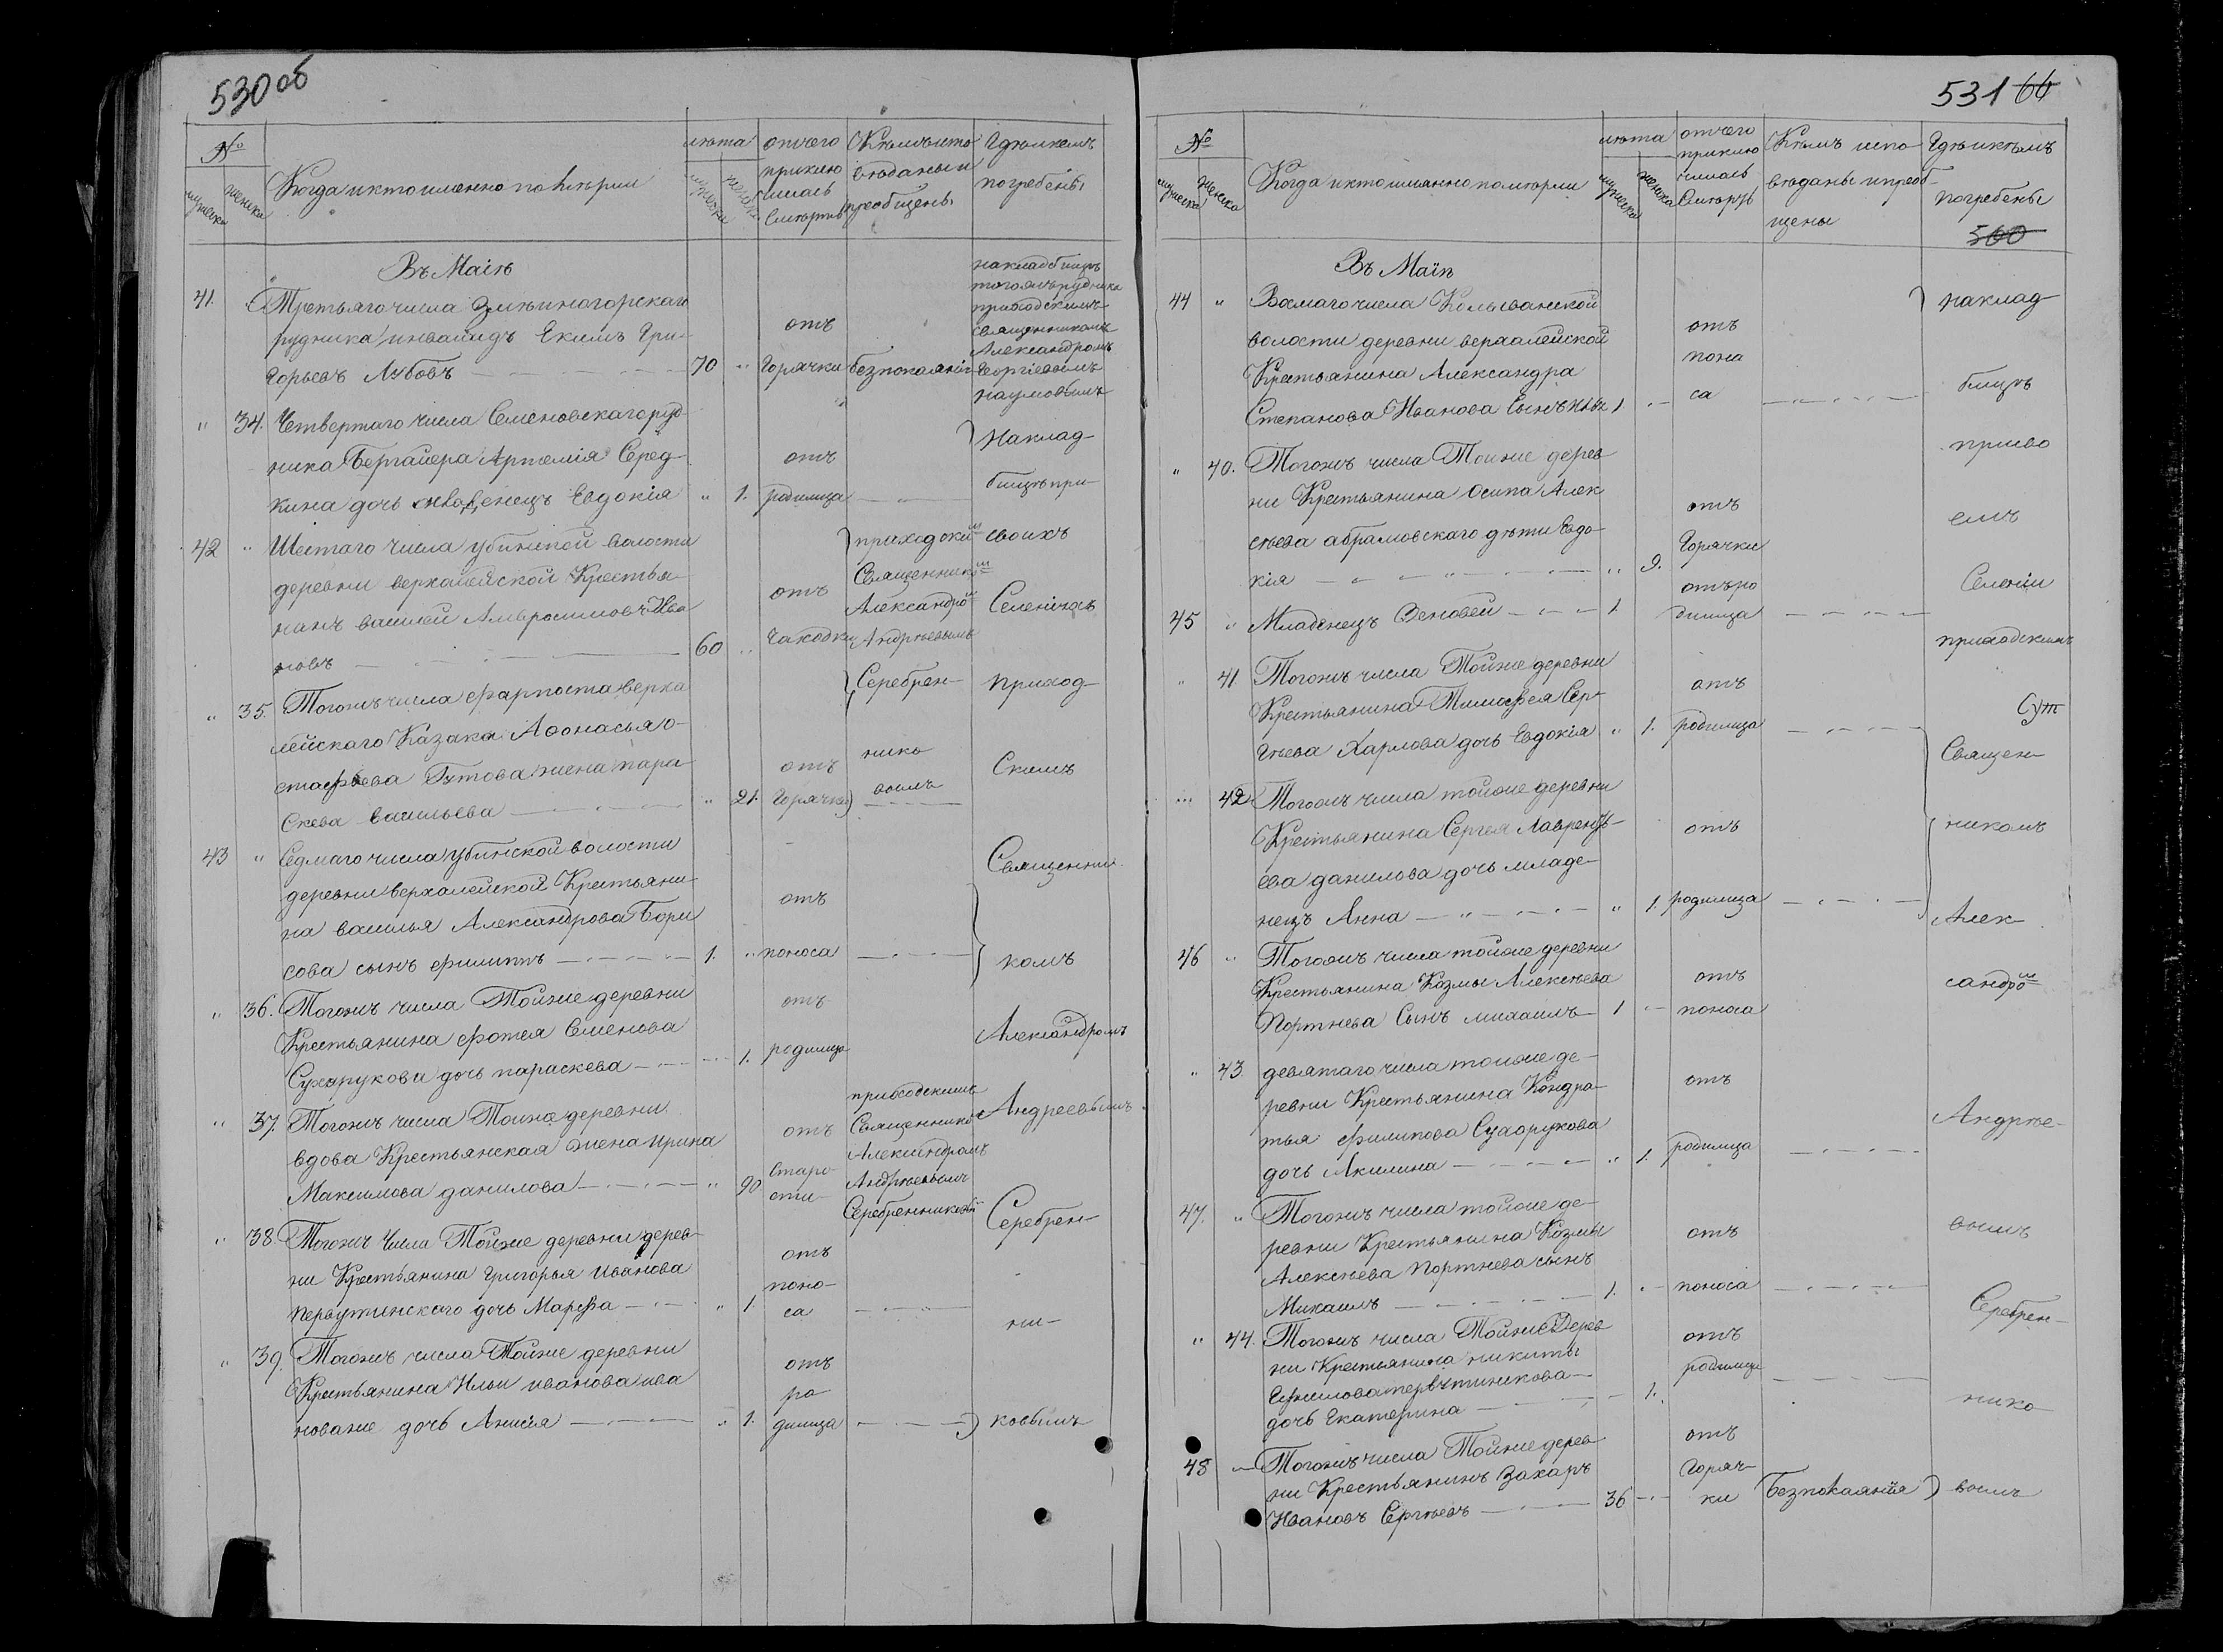 530 об
№
мужеска
женска
Когда и кто именно помѣрли
лѣта
мужска
женска
отчего
приклю
чилась
смерть
Кѣмъ испо
вѣданы и
преобщены
Гдѣ и кемъ
погребены
Въ Маiѣ
41. Третьяго числа Змѣиногорскаго
рудника инвалидъ Екимъ Гри-
горьевъ Лубовъ 70 "
отъ
горячки
без покаянiя
на кладбищѣ
того жъ рудника
приходскимъ
священникомъ
Александромъ
Георгiевымъ
Наумовымъ
" 34. Четвертаго числа Семеновскаго руд-
ника Бергайера Артемiя Серед-
кина дочь младенецъ Евдокiя " 1.
отъ
родимца
на клад-
бищѣ при
42 " Шестаго числа убинской волости
деревни верхалейской Крестья-
нинъ василей Амвросимовъ Ива
новъ 60 "
отъ
чаходки
приходским
Священником
Александром
Андрѣевымъ
Серебрен-
нико
вымъ
своихъ
Селенiихъ
" 35. Тогожъ числа фарпоста верха
лейскаго Казака Афонасья о-
стафьева Гутова жена пара
скева васильева " 21.
отъ
горячки
приход-
скимъ
43 " Седмаго числа убинской волости
деревни верхалейской Крестьяни-
на василья Александрова Бори
сова сынъ филиппъ 1. "
отъ
поноса
Священни-
комъ
" 36. Тогожъ числа Тойже деревни
Крестьянина фотея Семенова
Сухарукова дочь параскева " 1.
отъ
родимца
Александромъ
" 37. Тогожъ числа Тойже деревни
вдова Крестьянская жена ирина
Максимова данилова " 90
отъ
старо-
сти
приходскимъ
Священником
Александромъ
Андрѣевымъ
Серебренниковым
Андреевымъ
" 38. Тогожъ Числа Тойже деревни дерев-
ни Крестьянина григорья иванова
первутинскаго дочь Марфа " 1.
отъ
поно-
са
Серебрен-
ни-
" 39. Тогожъ числа Тойже деревни
Крестьянина Ильи иванова ива
новаже дочь Анисiя " 1.
отъ
ро
димца
ковымъ
531 66
№
мужеска
женска
Когда и кто имянно помѣрли
лѣта
мужеска
женска
отчего
приклю
чилась
Смерть
Кѣмъ испо
вѣданы и преоб-
щены
Гдѣ и кѣмъ
погребены
560
Въ Маiѣ
44 " Восмаго числа Колыванской
волости деревни верхалейской
Крестьянина Александра
Степанова Иванова Сынъ 1.
отъ
поно
са
на клад-
бищѣ
" 40. Тогожъ числа Тойже дерев
ни Крестьянина Осипа Алек
сѣева абрамовскаго дѣти Евдо-
кiя " 9.
отъ
Горячки
при сво
емъ
45 " Младенецъ Зеновей 1
отъ ро
димца
Селенiи
приходскимъ
" 41. Тогожъ числа Тойже деревни
Крестьянина Тимофея Сер-
гѣева Харлова дочь Евдокiя " 1.
отъ
родимца
Сут
Священ-
42. Тогожъ числа тойже деревни
Крестьянина Сергея Лаврентъ-
ева данилова дочь младе-
нецъ Анна " 1.
отъ
родимца
никомъ
Алек-
46 " Тогожъ числа тойже деревни
Крестьянина Козмы Алексѣева
Портнева Сынъ михаилъ 1
отъ
поноса
сандром
" 43. девятаго числа тойже де-
ревни Крестьянина Кондра-
тья филипова Сухорукова
дочь Акилина " 1.
отъ
родимца
Андрѣе-
47. " Тогожъ числа тойже де-
ревни Крестьянина Козмы
Алексѣева Портнева сынъ
Михаилъ 1.
отъ
поноса
вымъ
" 44. Тогожъ числа Тойже Дерев
ни Крестьянина никиты
первутинскова
дочь Екатерина 1.
отъ
родимца
Серебрен-
нико
48 Тогожъ числа Тойже дерев
ни Крестьянинъ Захаръ
Ивановъ Сергѣевъ 36
отъ
Горяч-
ки
Без покаянiя
вымъ